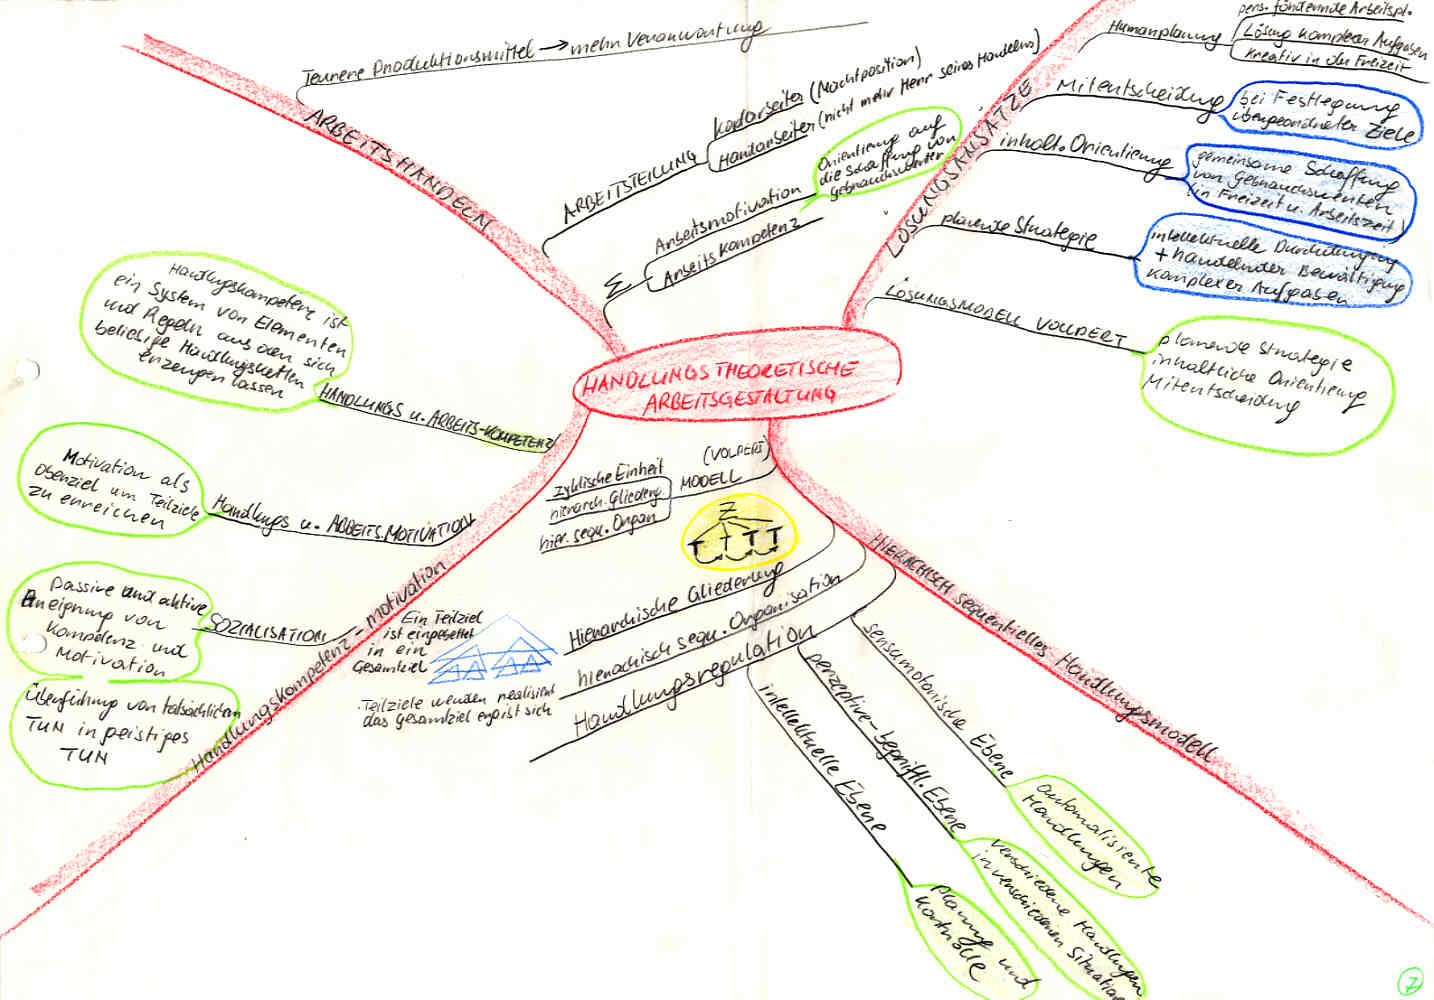 HANDLUNGSTHEORETISCHE
ARBEITSGESTALTUNG
ARBEITSHANDELN
Teurere Produktionsmittel → mehr Verantwortung
ARBEITSTEILUNG
Kopfarbeiter (Machtposition)
Handarbeiter (nicht mehr Herr seines Handelns)
Σ
Arbeitsmotivation
Arbeitskompetenz
Orientierung auf
die Schaffung von
Gebrauchswerten
LÖSUNGSANSÄTZE
Humanplanung
pers. fördernde Arbeitspl.
Lösung komplexer Aufgaben
Kreativ in der Freizeit
Mitentscheidung
bei Festlegung
übergeordneter Ziele
inhalt. Orientierung
gemeinsame Schaffung
von Gebrauchswerten
(in Freizeit u. Arbeitszeit)
planende Strategie
intellektuelle Durchdringung
+ handelnder Bewältigung
komplexer Aufgaben
LÖSUNGSMODELL VOLPERT
planende Strategie
inhaltliche Orientierung
Mitentscheidung
Handlungskompetenz - motivation
Handlungskompetenz ist
ein System von Elementen
und Regeln aus den sich
beliebige Handlungsketten
erzeugen lassen
HANDLUNGS u. ARBEITS-KOMPETENZ
Motivation als
Oberziel um Teilziele
zu erreichen
Handlungs u. ARBEITS.MOTIVATION
Passive und aktive
Aneignung von
Kompetenz und
Motivation
SOZIALISATION
Überführung von tatsächlichem
TUN in geistiges
TUN
HIERACHISCH sequentielles Handlungsmodell
(VOLPERT)
MODELL
zyklische Einheit
hierarch. Gliederg.
hier. sequ. Organ
Z
T T T T
Hierarchische Gliederung
hierachisch sequ. Organisation
Handlungsregulation
Ein Teilziel
ist eingebettet
in ein
Gesamtziel
Teilziele werden realisiert
das Gesamtziel ergibt sich
sensumotorische Ebene
automatisierte
Handlungen
perzeptive-begriffl. Ebene
verschiedene Handlungen
in verschiedenen Situationen
intellektuelle Ebene
Planung und
Kontrolle
7